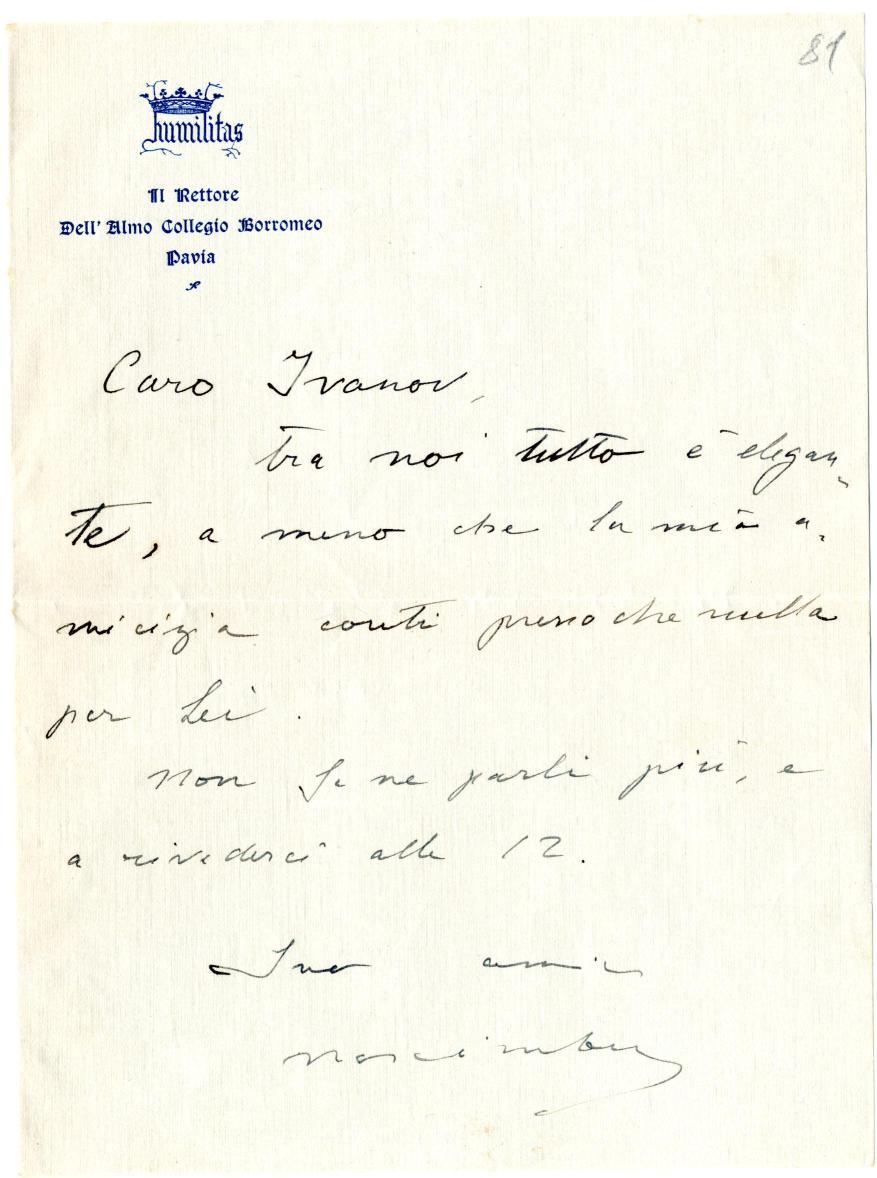 81
humilitas
Il Rettore
Dell' Almo Collegio Borromeo
Pavia
Caro Ivanov,
tra noi tutto è elegan-
te, a meno che la mia a-
micizia conti pressoche nulla
per Lei.
Non se ne parli più, e
a rivederci alle 12.
Suo